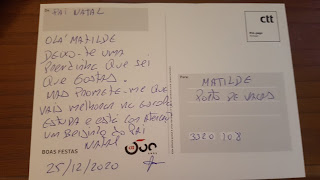 DE:
PAI NATAL
OLÁ MATILDE
DEIXO-TE UMA
PRENDINHA QUE SEI
QUE GOSTAS.
MAS PROMETE-ME QUE
VAIS MELHORAR NA ESCOLA
ESTUDA E ESTÁ COM ATENÇÃO
UM BEIJINHO DO PAI
NATAL
BOAS FESTAS
25/12/2020
ctt
Para:
MATILDE
PORTO DE VACAS
3320 308